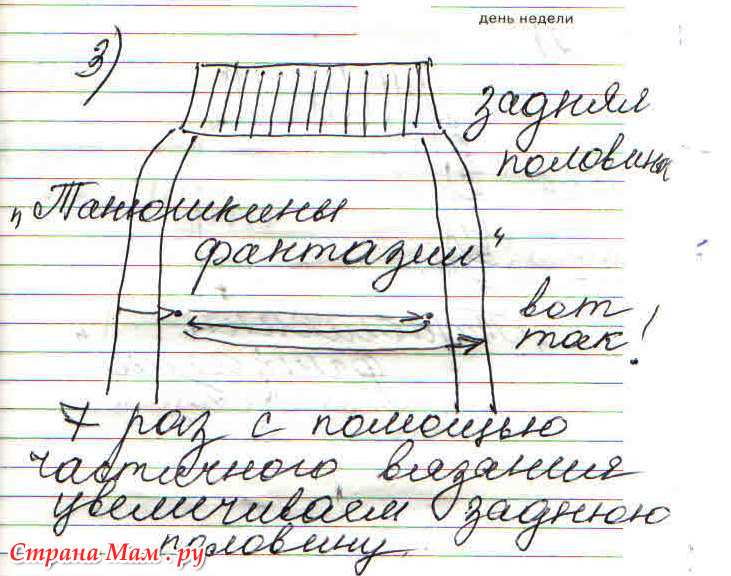 день недели
3)
задняя
половина
„Танюшкины
фантазии“
вот
так!
7 раз с помощью
частичного вязания
увеличиваем заднюю
половину.
Страна Мам.ру